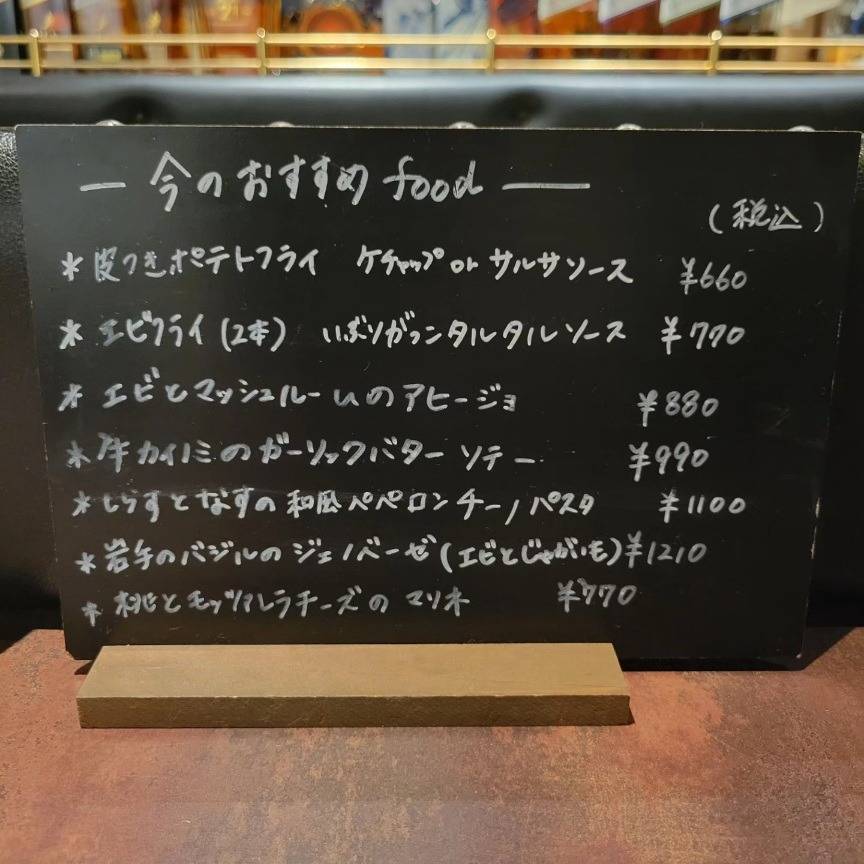 — 今のおすすめ food —
(税込)
* 皮つきポテトフライ ケチャップ or サルサソース ¥660
* エビフライ (2本) いぶりがっこタルタルソース ¥770
* エビとマッシュルームのアヒージョ ¥880
* 牛カイノミのガーリックバターソテー ¥990
* しらすとなすの和風ペペロンチーノパスタ ¥1100
* 岩手のバジルのジェノベーゼ (エビとじゃがいも) ¥1210
* 桃とモッツァレラチーズのマリネ ¥770